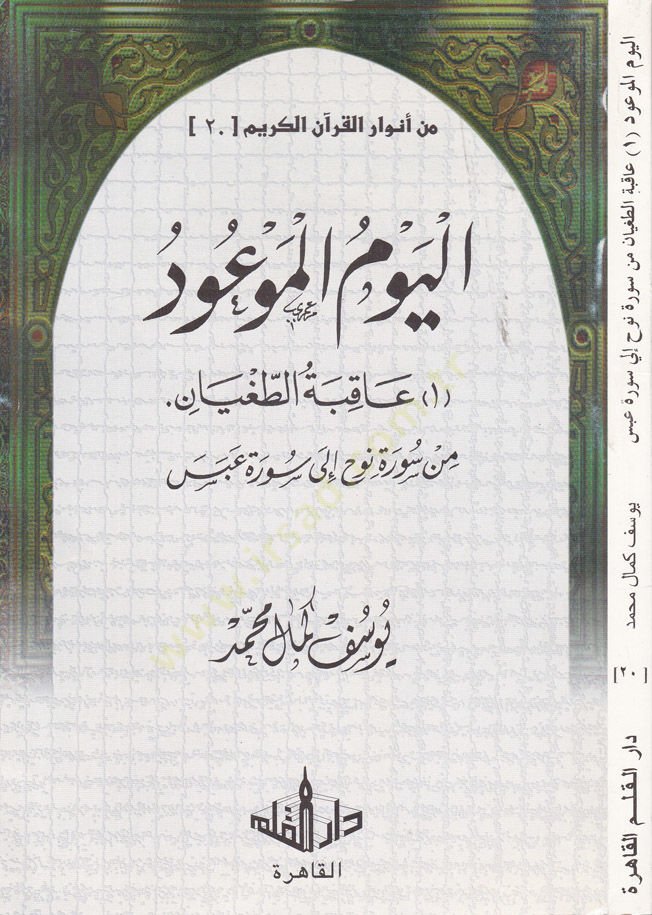 من أنوار القرآن الكريم [٢٠]
اليَوْمُ المَوْعُودُ
(١) عَاقِبَةُ الطّغْيَانِ.
مِنْ سُورَة نوح إلى سُورَة عَبَسَ
يُوسُف كمال محمّد
دار القلم
القاهرة
اليوم الموعود (١) عاقبة الطغيان من سورة نوح إلي سورة عبس
يوسف كمال محمد
[٢٠]
دار القلم القاهرة